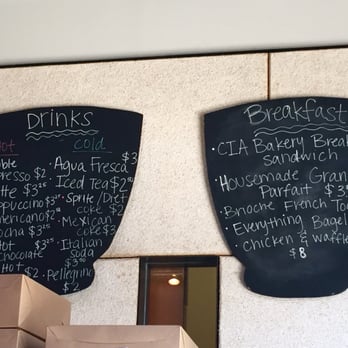 Drinks
ot
cold
ble
presso $2
Agua Fresca $3
tte $3
Iced Tea $2
ppuccino $3
Sprite/Diet
mericano $2
coke $2
ocha $3
Mexican
coke $3
Hot $3
Chocolate
Italian
Soda
$3
Hot $2
Pellegrino
$2
Breakfast
CIA Bakery Break
Sandwich
Housemade Gran
Parfait $3
Brioche French To
Everything Bagel
chicken & waffle
$8